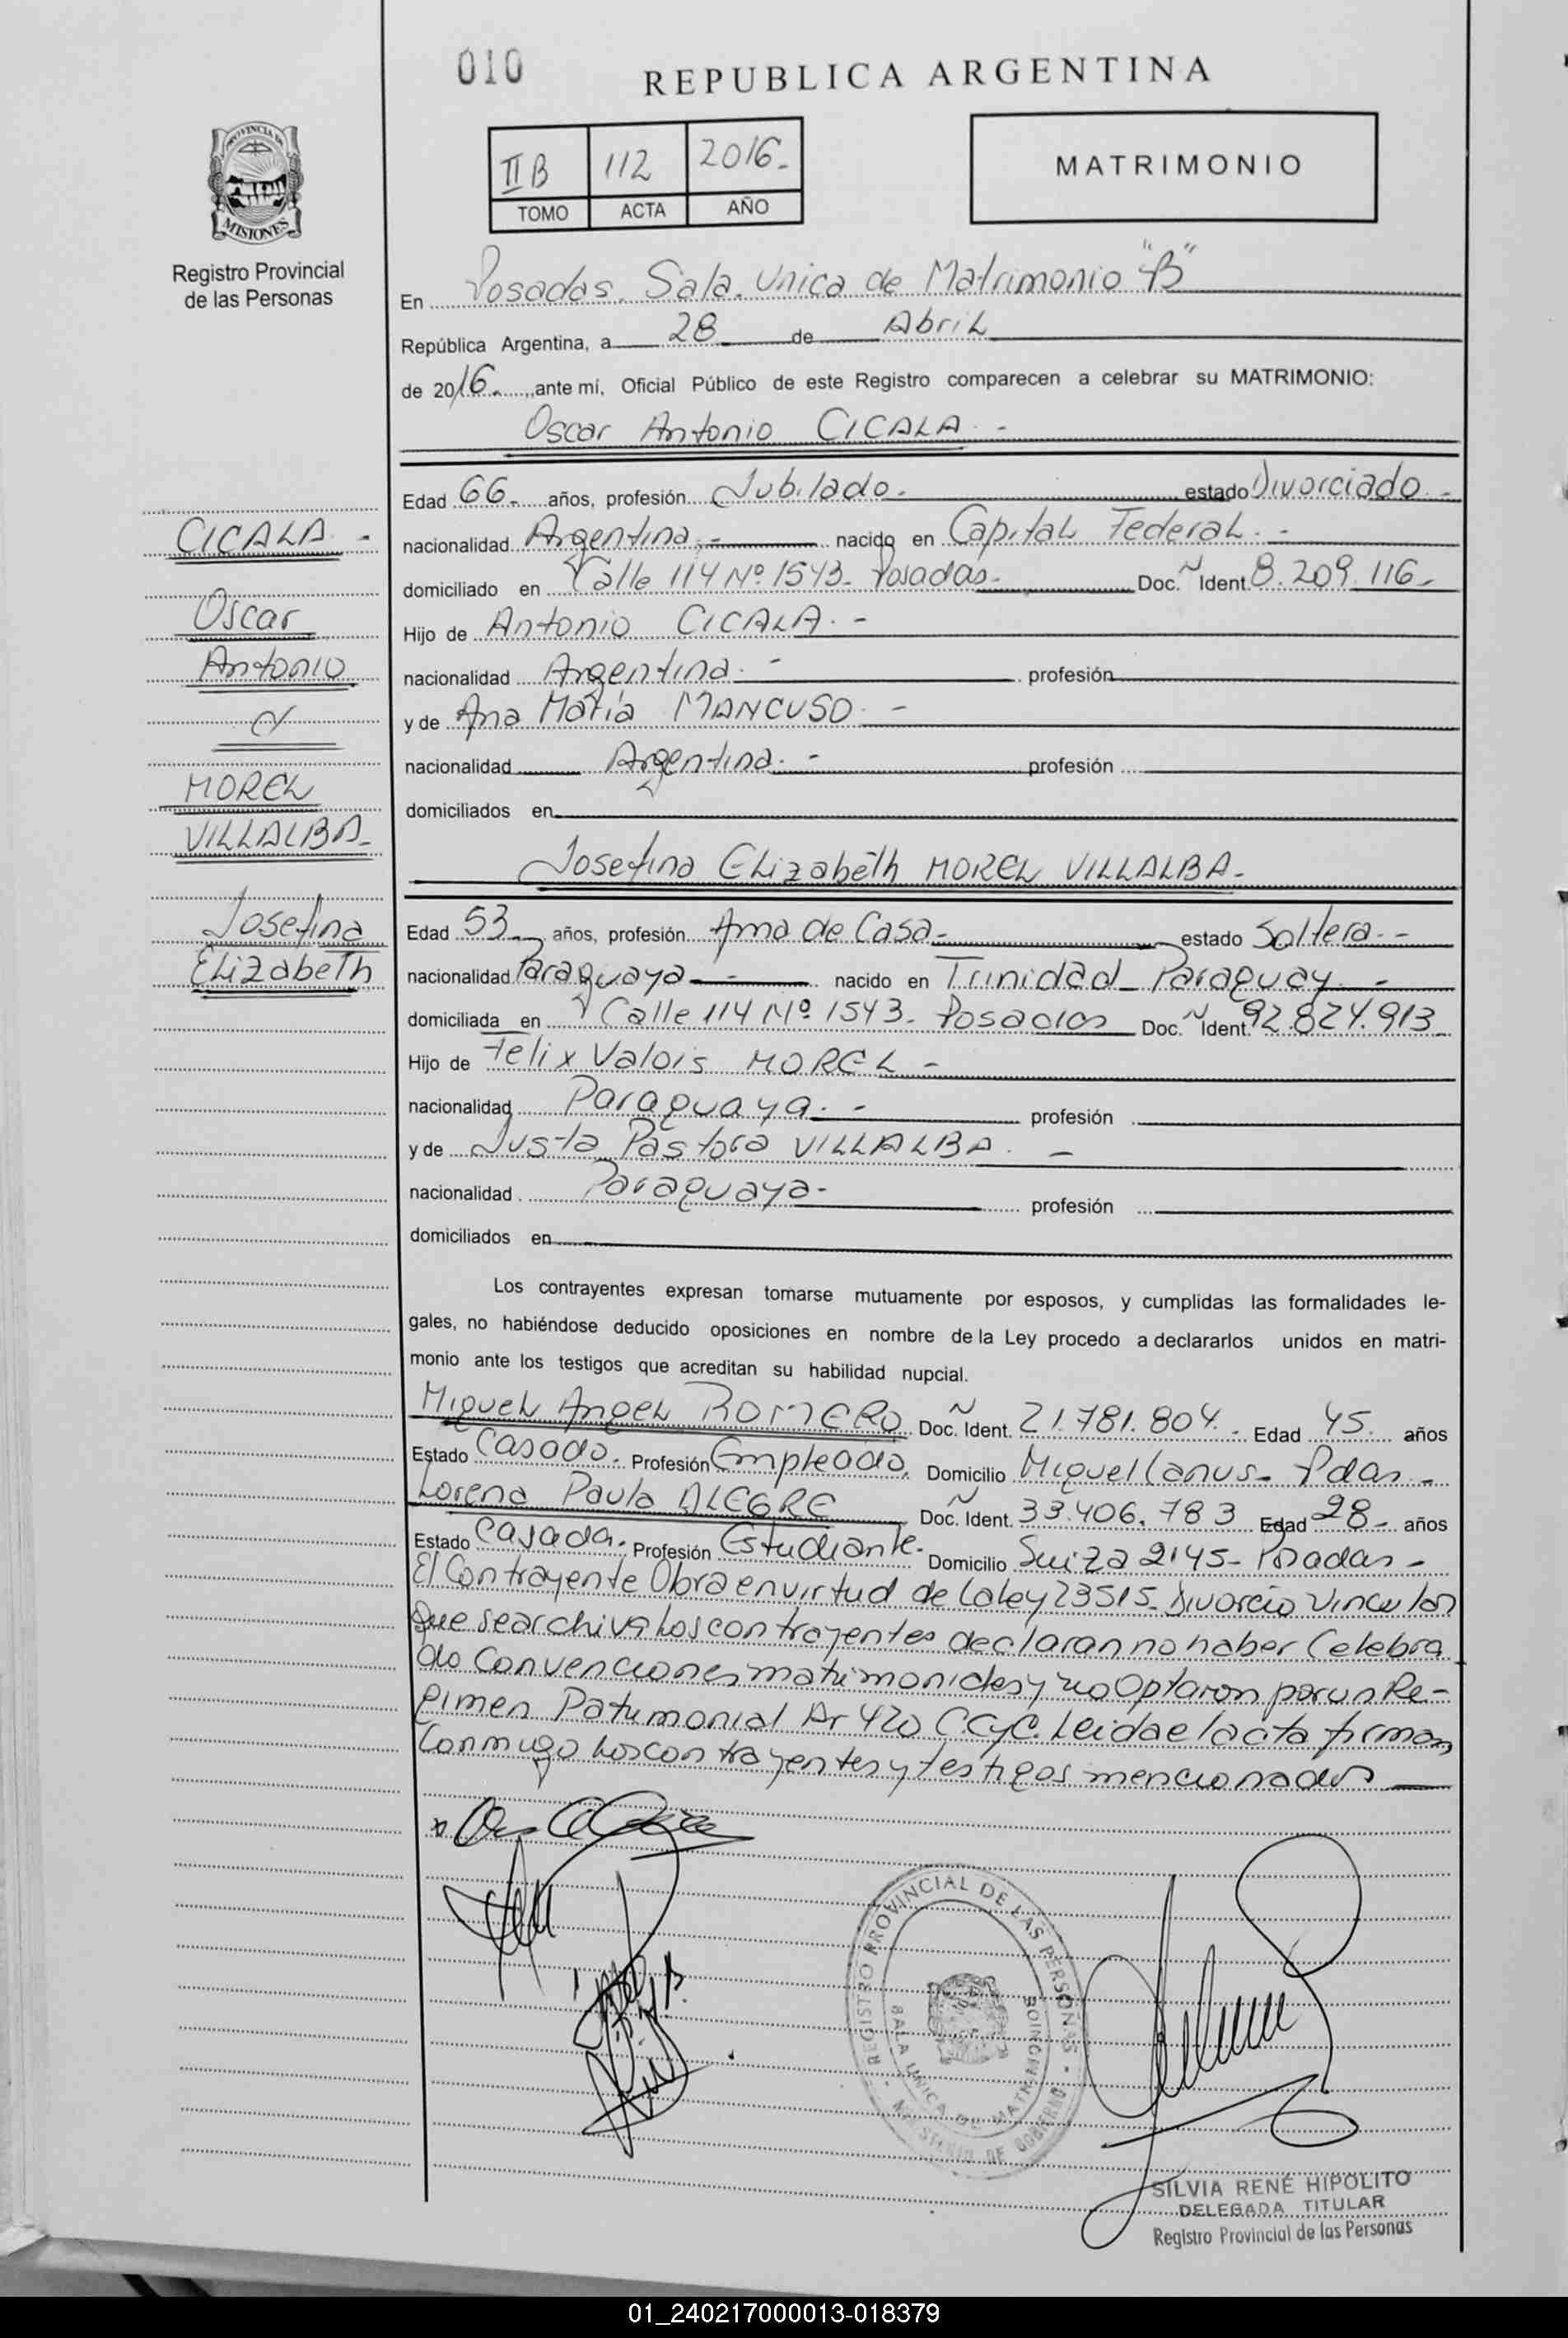 010
REPUBLICA ARGENTINA
II B 112 2016.-
TOMO ACTA AÑO
MATRIMONIO
PROVINCIA DE
MISIONES
Registro Provincial
de las Personas
En Posadas. Sala. Unica de Matrimonio "B"
República Argentina, a 28 de Abril
de 2016. ,ante mí, Oficial Público de este Registro comparecen a celebrar su MATRIMONIO:
Oscar Antonio CICALA.-
Edad 66.- años, profesión Jubilado.- estado Divorciado.-
CICALA.-
nacionalidad Argentina.- nacido en Capital Federal.-
domiciliado en Calle 114 Nº 1543- Posadas- Doc. Ñ Ident. 8.209.116-
Oscar
Hijo de Antonio CICALA.-
Antonio
nacionalidad Argentina.- profesión
y
y de Ana María MANCUSO.-
nacionalidad Argentina.- profesión
MOREL
domiciliados en
VILLALBA-
Josefina Elizabeth MOREL VILLALBA.-
Josefina
Edad 53- años, profesión Ama de Casa- estado Soltera.-
Elizabeth
nacionalidad Paraguaya- nacido en Trinidad- Paraguay-
domiciliada en Calle 114 Nº 1543- Posadas Doc. Ñ Ident. 92.824.913-
Hijo de Felix Valois MOREL-
nacionalidad Paraguaya.- profesión
y de Justa Pastora VILLALBA.-
nacionalidad Paraguaya- profesión
domiciliados en
Los contrayentes expresan tomarse mutuamente por esposos, y cumplidas las formalidades le-
gales, no habiéndose deducido oposiciones en nombre de la Ley procedo a declararlos unidos en matri-
monio ante los testigos que acreditan su habilidad nupcial.
Miguel Angel ROMERO Doc. Ñ Ident. 21.781.804.- Edad 45. años
Estado Casado.- Profesión Empleado. Domicilio Miguel Lanus- Pdas-
Lorena Paula ALEGRE Doc. Ñ Ident. 33.406.783 Edad 28- años
Estado Casada.- Profesión Estudiante.- Domicilio Suiza 2145- Posadas-
El Contrayente Obra en virtud de la ley 23515- Divorcio Vincular
que se archiva los contrayentes declaran no haber Celebra
do Convenciones matrimoniales y no Optaron por un Re-
gimen Patrimonial Ar 420 C.C y C. Leida el acta firman
Conmigo los contrayentes y testigos mencionados
REGISTRO PROVINCIAL DE LAS PERSONAS
SALA UNICA DE MATRIMONIOS
MINISTERIO DE GOBIERNO
SILVIA RENÉ HIPOLITO
DELEGADA TITULAR
Registro Provincial de las Personas
01_240217000013-018379